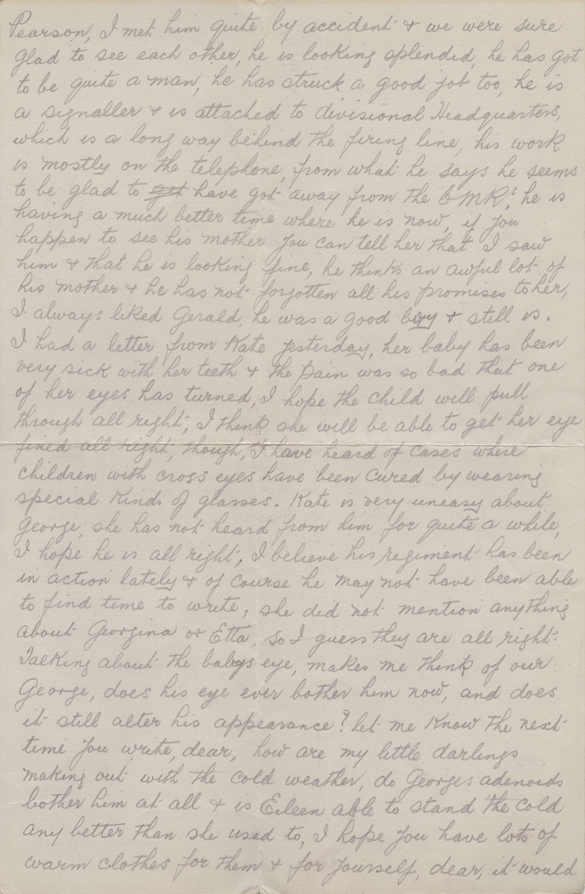 Pearson, I met him quite by accident & we were sure
glad to see each other, he is looking splendid, he has got
to be quite a man, he has struck a good job too, he is
a signaller & is attached to divisional Headquarters,
which is a long way behind the firing line, his work
is mostly on the telephone, from what he says he seems
to be glad to get have got away from the CMR's he is
having a much better time where he is now, if you
happen to see his mother you can tell her that I saw
him & that he is looking fine, he thinks an awful lot of
his mother & he has not forgotten all his promises to her,
I always liked Gerald, he was a good boy & still is.
I had a letter from Kate yesterday, her baby has been
very sick with her teeth & the pain was so bad that one
of her eyes has turned, I hope the child will pull
through all right, I think she will be able to get her eye
fixed all right, though, I have heard of cases where
children with cross eyes have been cured by wearing
special kinds of glasses. Kate is very uneasy about
George, she has not heard from him for quite a while,
I hope he is all right, I believe his regiment has been
in action lately & of course he may not have been able
to find time to write, she did not mention anything
about Georgina or Etta, so I guess they are all right.
Talking about the babys eye, makes me think of our
George, does his eye ever bother him now, and does
it still alter his appearance? let me know the next
time you write, dear, how are my little darlings
making out with the cold weather, do Georges adenoids
bother him at all & is Eileen able to stand the cold
any better than she used to, I hope you have lots of
warm clothes for them & for yourself, dear, it would